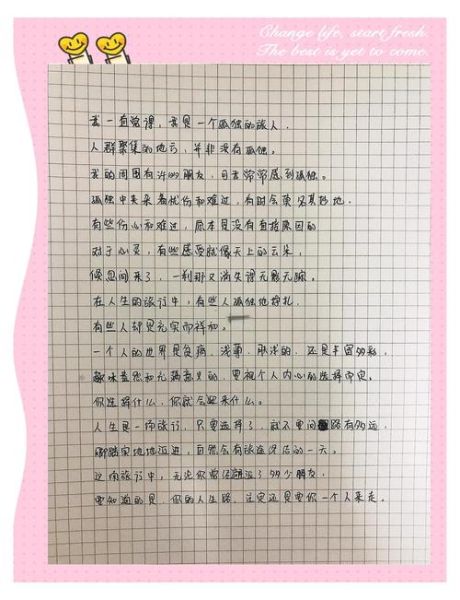 Change life, start fresh.
The best is yet to come.
我一直觉得，我是一个孤独的旅人，
人群聚集的地方，并非没有孤独。
我的周围有许多的朋友，可我常常感到孤独。
孤独中夹杂着忧伤和难过，有时会莫名其妙地。
有些伤心和难过，原本是没有直接原因的
对于心灵，有些感觉就像天上的云朵，
倏忽间来了，一刹那又消失得无影无踪。
在人生的旅行中，有些人孤独地挣扎，
有些人却是充实而祥和。
一个人的世界是贫瘠、浅薄、肤浅的，还是丰富多彩、
趣味盎然和充满意义的，要视个人内心的选择而定。
你选择什么，你就会迎来什么。
人生是一场旅行，只要选择了，就不要问路有多远，
脚踏实地地迈进，自然会有旅途没有的一天。
这场旅行中，无论你曾经遇过了多少朋友，
要知道的是，你的人生路，注定还是要你一个人来走。